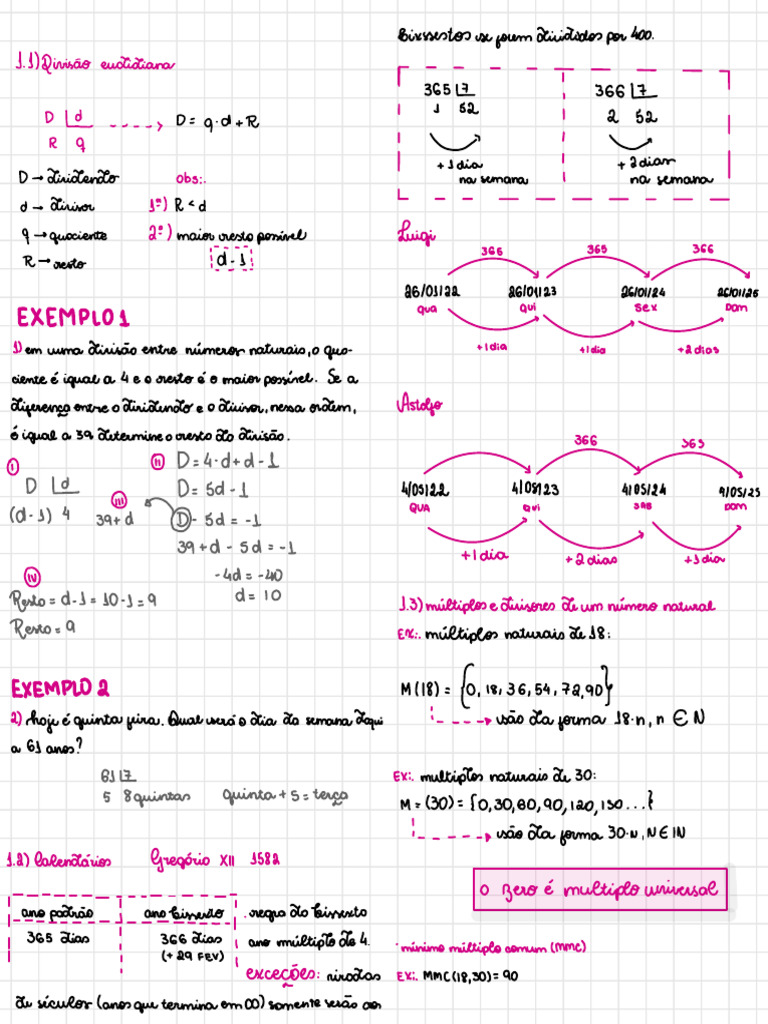 1.1) Divisão euclidiana
D | d
R q
D = q·d + R
D → dividendo
d → divisor
q → quociente
R → resto
obs:.
1º) R < d
2º) maior resto possível
d - 1
EXEMPLO 1
1) em uma divisão entre números naturais, o quo-
ciente é igual a 4 e o resto é o maior possível. Se a
diferença entre o dividendo e o divisor, nessa ordem,
é igual a 39 determine o resto da divisão.
I
D | d
(d-1) 4
II
D = 4·d + d - 1
D = 5d - 1
III
39 + d
D - 5d = -1
39 + d - 5d = -1
-4d = -40
d = 10
IV
Resto = d - 1 = 10 - 1 = 9
Resto = 9
EXEMPLO 2
2) hoje é quinta feira. Qual será o dia da semana daqui
a 61 anos?
61 | 7
5 8 quintas
quinta + 5 = terça
1.2) Calendários Gregório XII 1582
ano padrão
365 dias
ano bissexto
366 dias
(+ 29 FEV)
regra do bissexto
ano múltiplo de 4.
exceções: viradas
de séculos (anos que termina em 00) somente serão os
Bissestos se forem divididos por 400.
365 | 7
1 52
+ 1 dia
na semana
366 | 7
2 52
+ 2 dias
na semana
Luigi
365 365 366
26/01/22 26/01/23 26/01/24 26/01/25
QUA QUI SEX DOM
+1 dia +1 dia +2 dias
Astolfo
366 365
4/05/22 4/05/23 4/05/24 4/05/25
QUA QUI SAB DOM
+1 dia +2 dias +1 dia
1.3) múltiplos e divisores de um número natural
EX:. múltiplos naturais de 18:
M(18) = {0, 18, 36, 54, 72, 90}
são da forma 18·n, n ∈ N
EX:. multiplos naturais de 30:
M = (30) = {0, 30, 60, 90, 120, 150 ...}
são da forma 30·N, N ∈ IN
O zero é multiplo universal
· mínimo múltiplo comum (MMC)
EX:. MMC (18,30) = 90